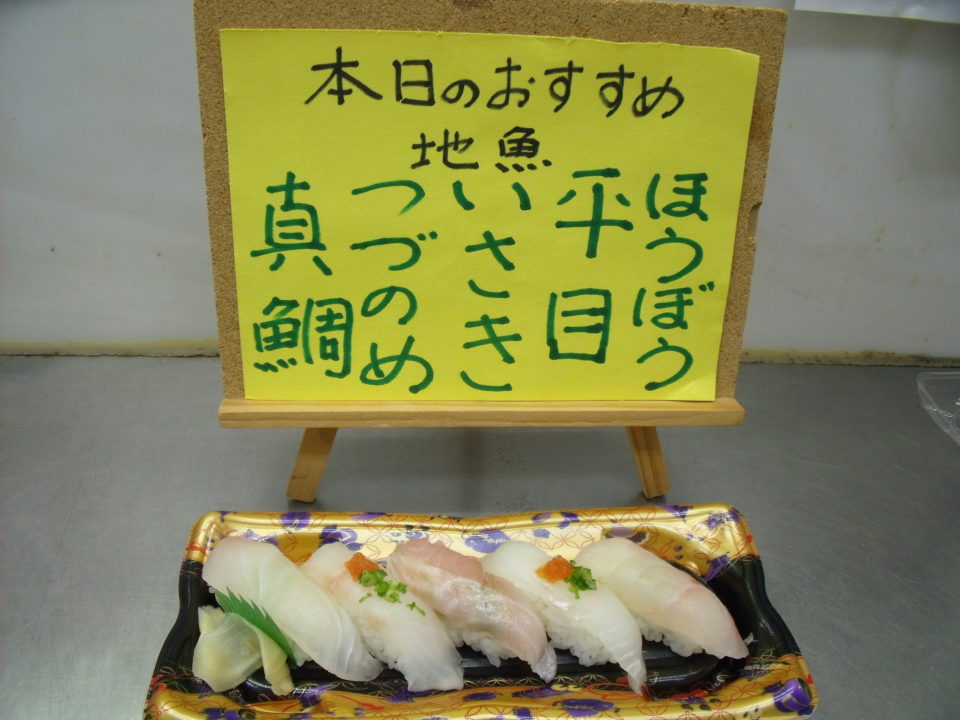 本日のおすすめ
地魚
ほうぼう
平目
いさき
つづのめ
真鯛